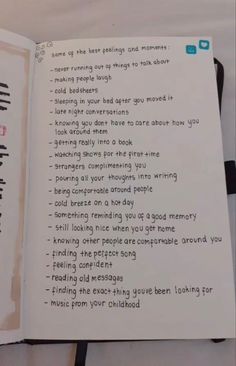 some of the best feelings and moments:
- never running out of things to talk about
- making people laugh
- cold bedsheets
- sleeping in your bed after you moved it
- late night conversations
- knowing you dont have to care about how you
look around them
- getting really into a book
- watching shows for the first time
- strangers complimenting you
- pouring all your thoughts into writing
- being comfortable around people
- cold breeze on a hot day
- something reminding you of a good memory
- still looking nice when you get home
- knowing other people are comfortable around you
- finding the perfect song
- feeling confident
- reading old messages
- finding the exact thing you've been looking for
- music from your childhood